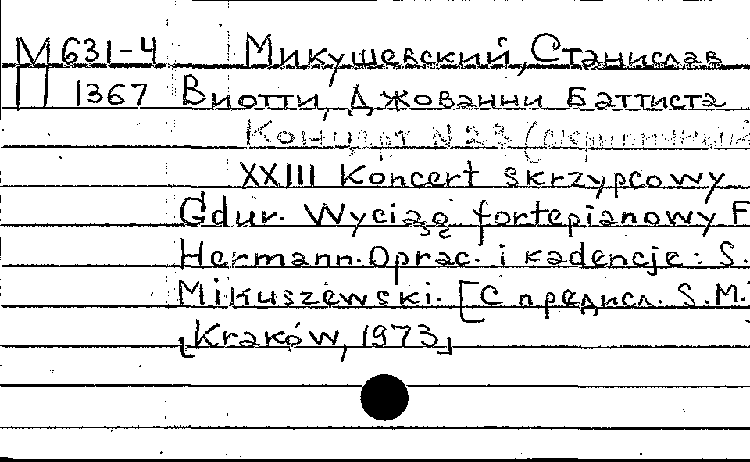 М 631-4 Микушевский, Станислав
П 1367 Виотти, Джованни Баттиста
Концерт N 23 (скрипичный
XXIII Koncert skrzypcowy
Gdur. Wyciąg fortepianowy F.
Hermann. Oprac. i kadencje: S.
Mikuszewski. [С предисл. S.M.]
[Kraków, 1973]